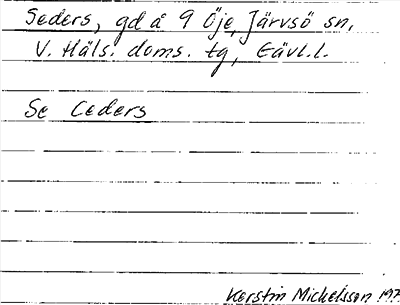 Seders, gd å 9 Öje, Järvsö sn,
V. Häls. doms. tg, Gävl.l.
Se Ceders
Kerstin Mickelsson 197